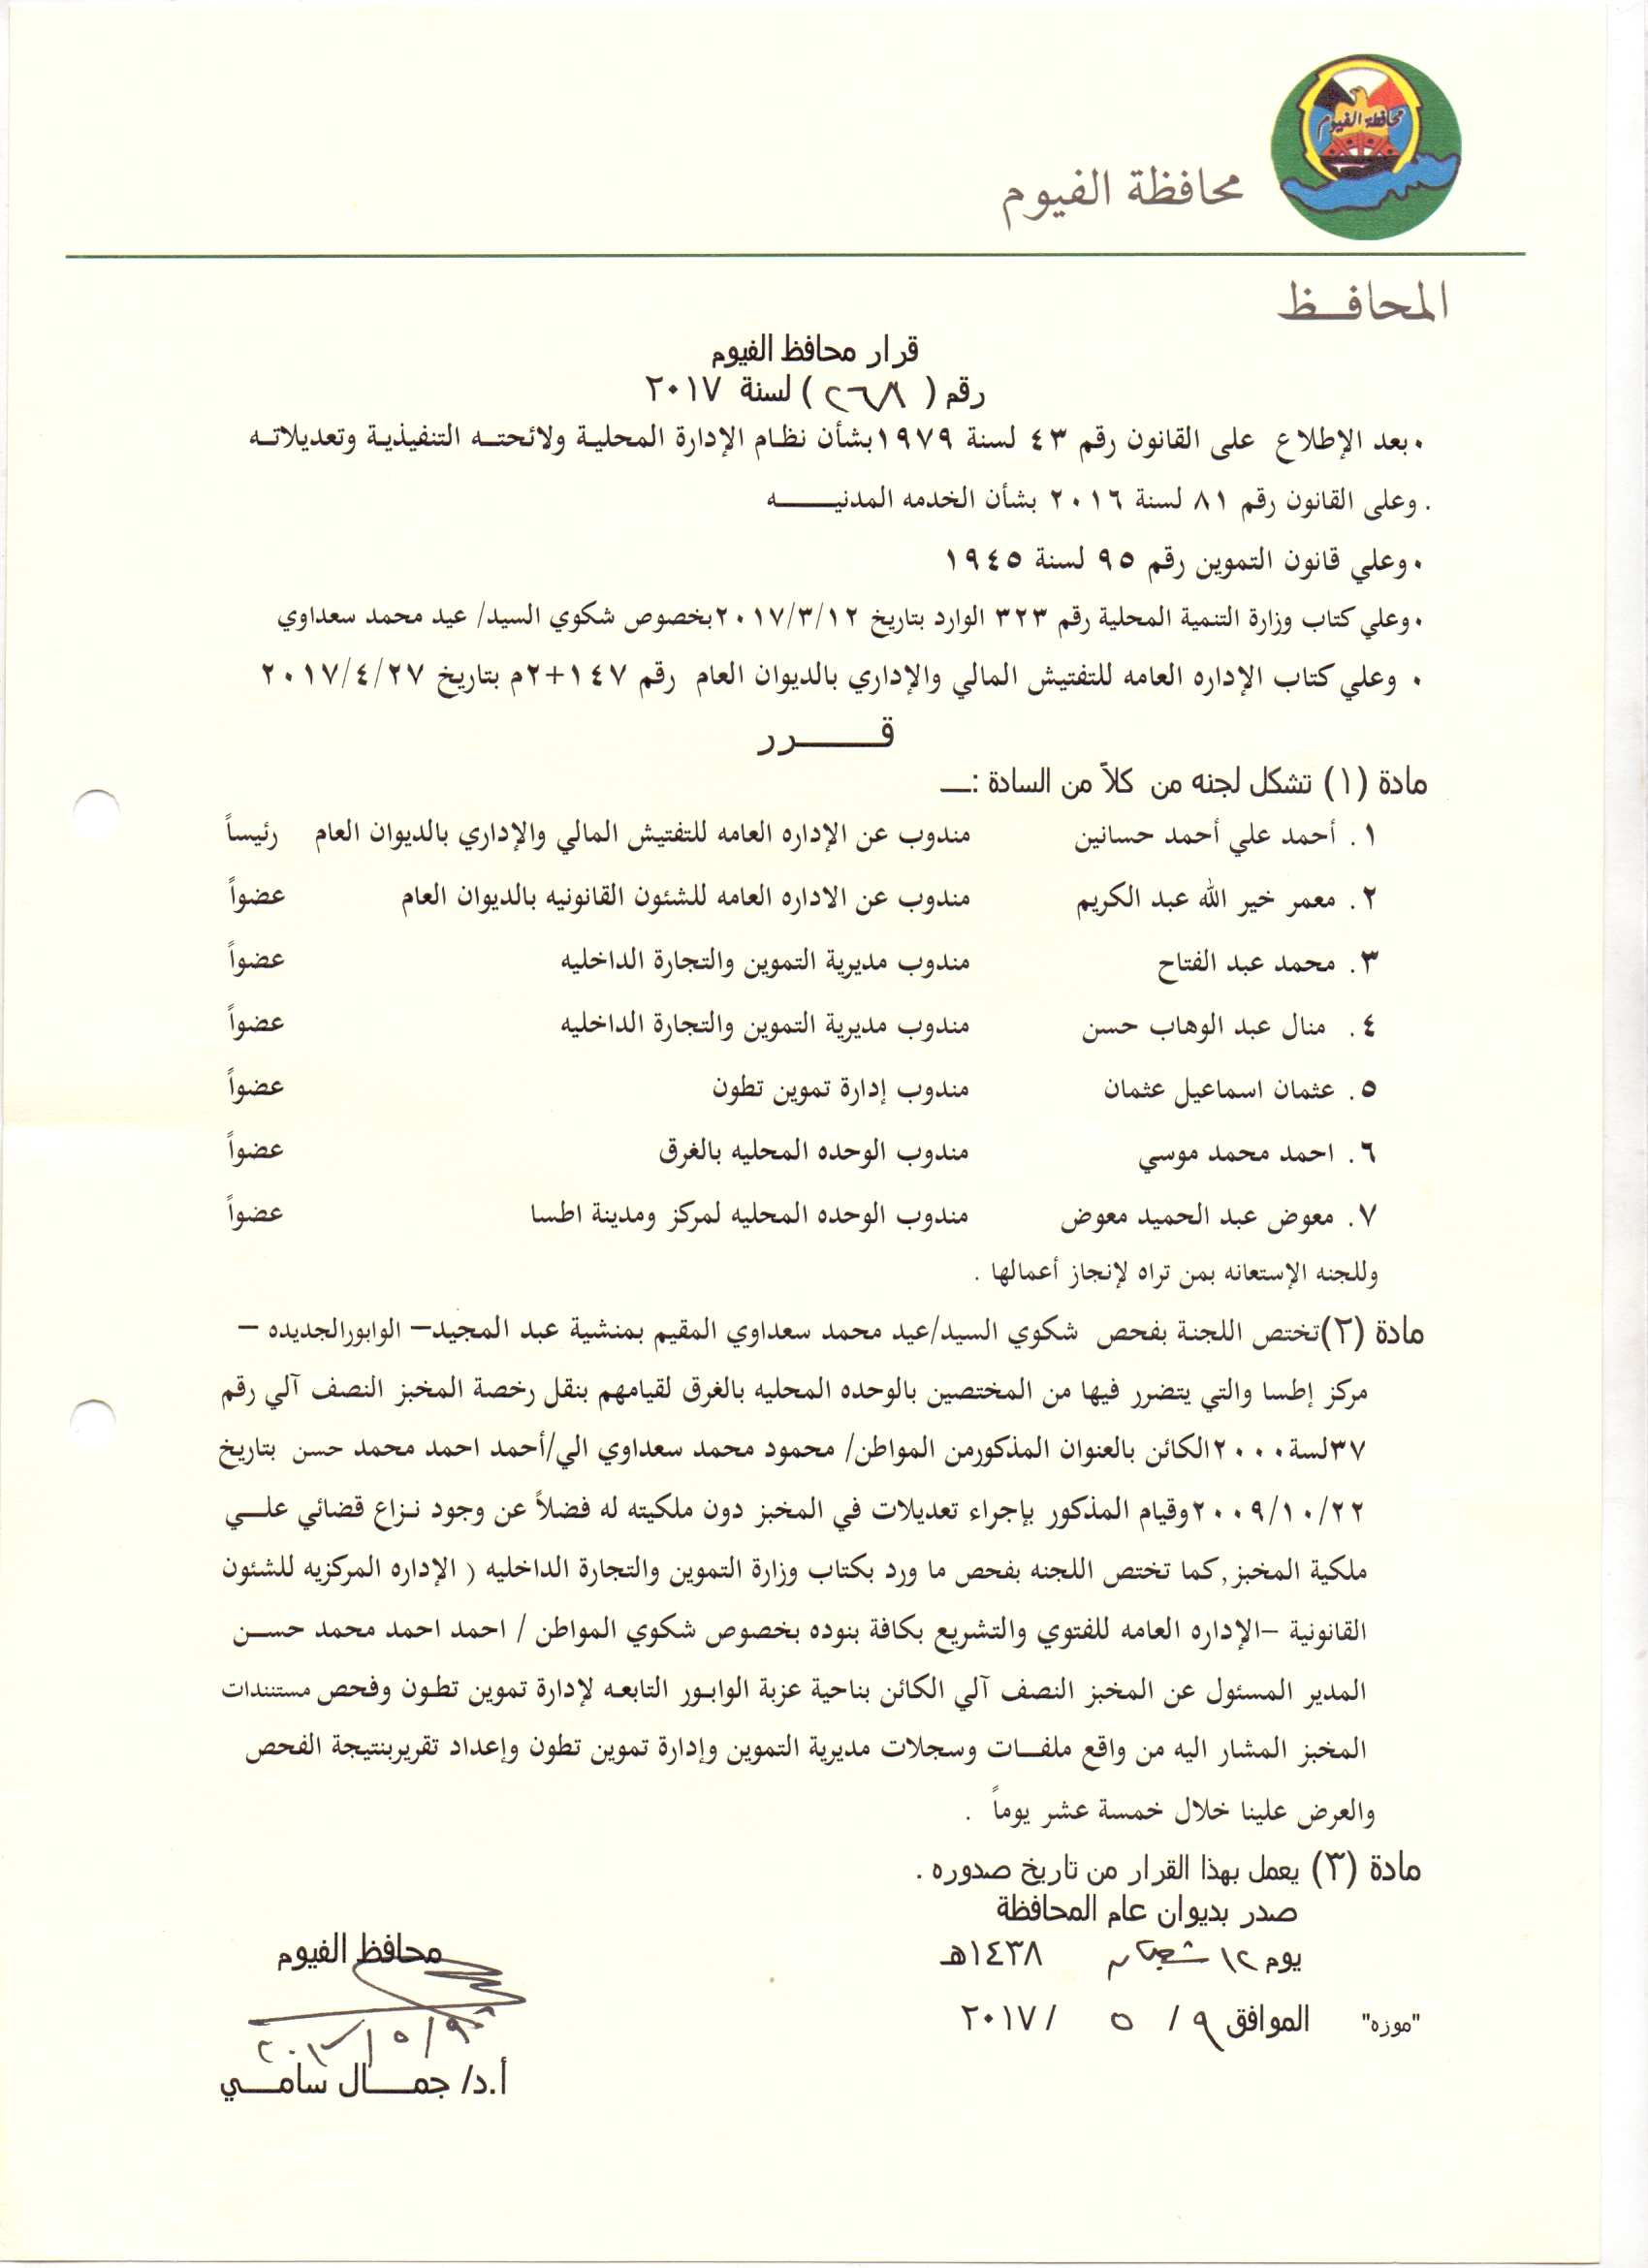 محافظة الفيوم
محافظة الفيوم
المحافـــظ
قرار محافظ الفيوم
رقم ( ٢٦٨ ) لسنة ٢٠١٧
٠ بعد الإطلاع على القانون رقم ٤٣ لسنة ١٩٧٩بشأن نظام الإدارة المحلية ولائحته التنفيذية وتعديلاته
. وعلى القانون رقم ٨١ لسنة ٢٠١٦ بشأن الخدمه المدنيـــــه
٠ وعلي قانون التموين رقم ٩٥ لسنة ١٩٤٥
٠ وعلي كتاب وزارة التنمية المحلية رقم ٣٢٣ الوارد بتاريخ ٢٠١٧/٣/١٢بخصوص شكوي السيد/ عيد محمد سعداوي
٠ وعلي كتاب الإداره العامه للتفتيش المالي والإداري بالديوان العام رقم ١٤٧+٢م بتاريخ ٢٠١٧/٤/٢٧
قـــــــرر
مادة (١) تشكل لجنه من كلاً من السادة :ــ
١. أحمد علي أحمد حسانين مندوب عن الإداره العامه للتفتيش المالي والإداري بالديوان العام رئيساً
٢. معمر خير الله عبد الكريم مندوب عن الاداره العامه للشئون القانونيه بالديوان العام عضواً
٣. محمد عبد الفتاح مندوب مديرية التموين والتجارة الداخليه عضواً
٤. منال عبد الوهاب حسن مندوب مديرية التموين والتجارة الداخليه عضواً
٥. عثمان اسماعيل عثمان مندوب إدارة تموين تطون عضواً
٦. احمد محمد موسي مندوب الوحده المحليه بالغرق عضواً
٧. معوض عبد الحميد معوض مندوب الوحده المحليه لمركز ومدينة اطسا عضواً
وللجنه الإستعانه بمن تراه لإنجاز أعمالها .
مادة (٢)تختص اللجنة بفحص شكوي السيد/عيد محمد سعداوي المقيم بمنشية عبد المجيد– الوابورالجديده –
مركز إطسا والتي يتضرر فيها من المختصين بالوحده المحليه بالغرق لقيامهم بنقل رخصة المخبز النصف آلي رقم
٣٧لسة٢٠٠٠الكائن بالعنوان المذكورمن المواطن/ محمود محمد سعداوي الي/أحمد احمد محمد حسن بتاريخ
٢٠٠٩/١٠/٢٢وقيام المذكور بإجراء تعديلات في المخبز دون ملكيته له فضلاً عن وجود نزاع قضائي علي
ملكية المخبز,كما تختص اللجنه بفحص ما ورد بكتاب وزارة التموين والتجارة الداخليه ( الإداره المركزيه للشئون
القانونية –الإداره العامه للفتوي والتشريع بكافة بنوده بخصوص شكوي المواطن / احمد احمد محمد حســن
المدير المسئول عن المخبز النصف آلي الكائن بناحية عزبة الوابور التابعه لإدارة تموين تطون وفحص مستنندات
المخبز المشار اليه من واقع ملفـــات وسجلات مديرية التموين وإدارة تموين تطون وإعداد تقريربنتيجة الفحص
والعرض علينا خلال خمسة عشر يوماً .
مادة (٣) يعمل بهذا القرار من تاريخ صدوره .
صدر بديوان عام المحافظة
يوم ١٢ شعبان ١٤٣٨هـ
محافظ الفيوم
"موزه" الموافق ٩ / ٥ / ٢٠١٧
٢٠١٧/٥/٩
أ.د/ جمـــال سامـــي